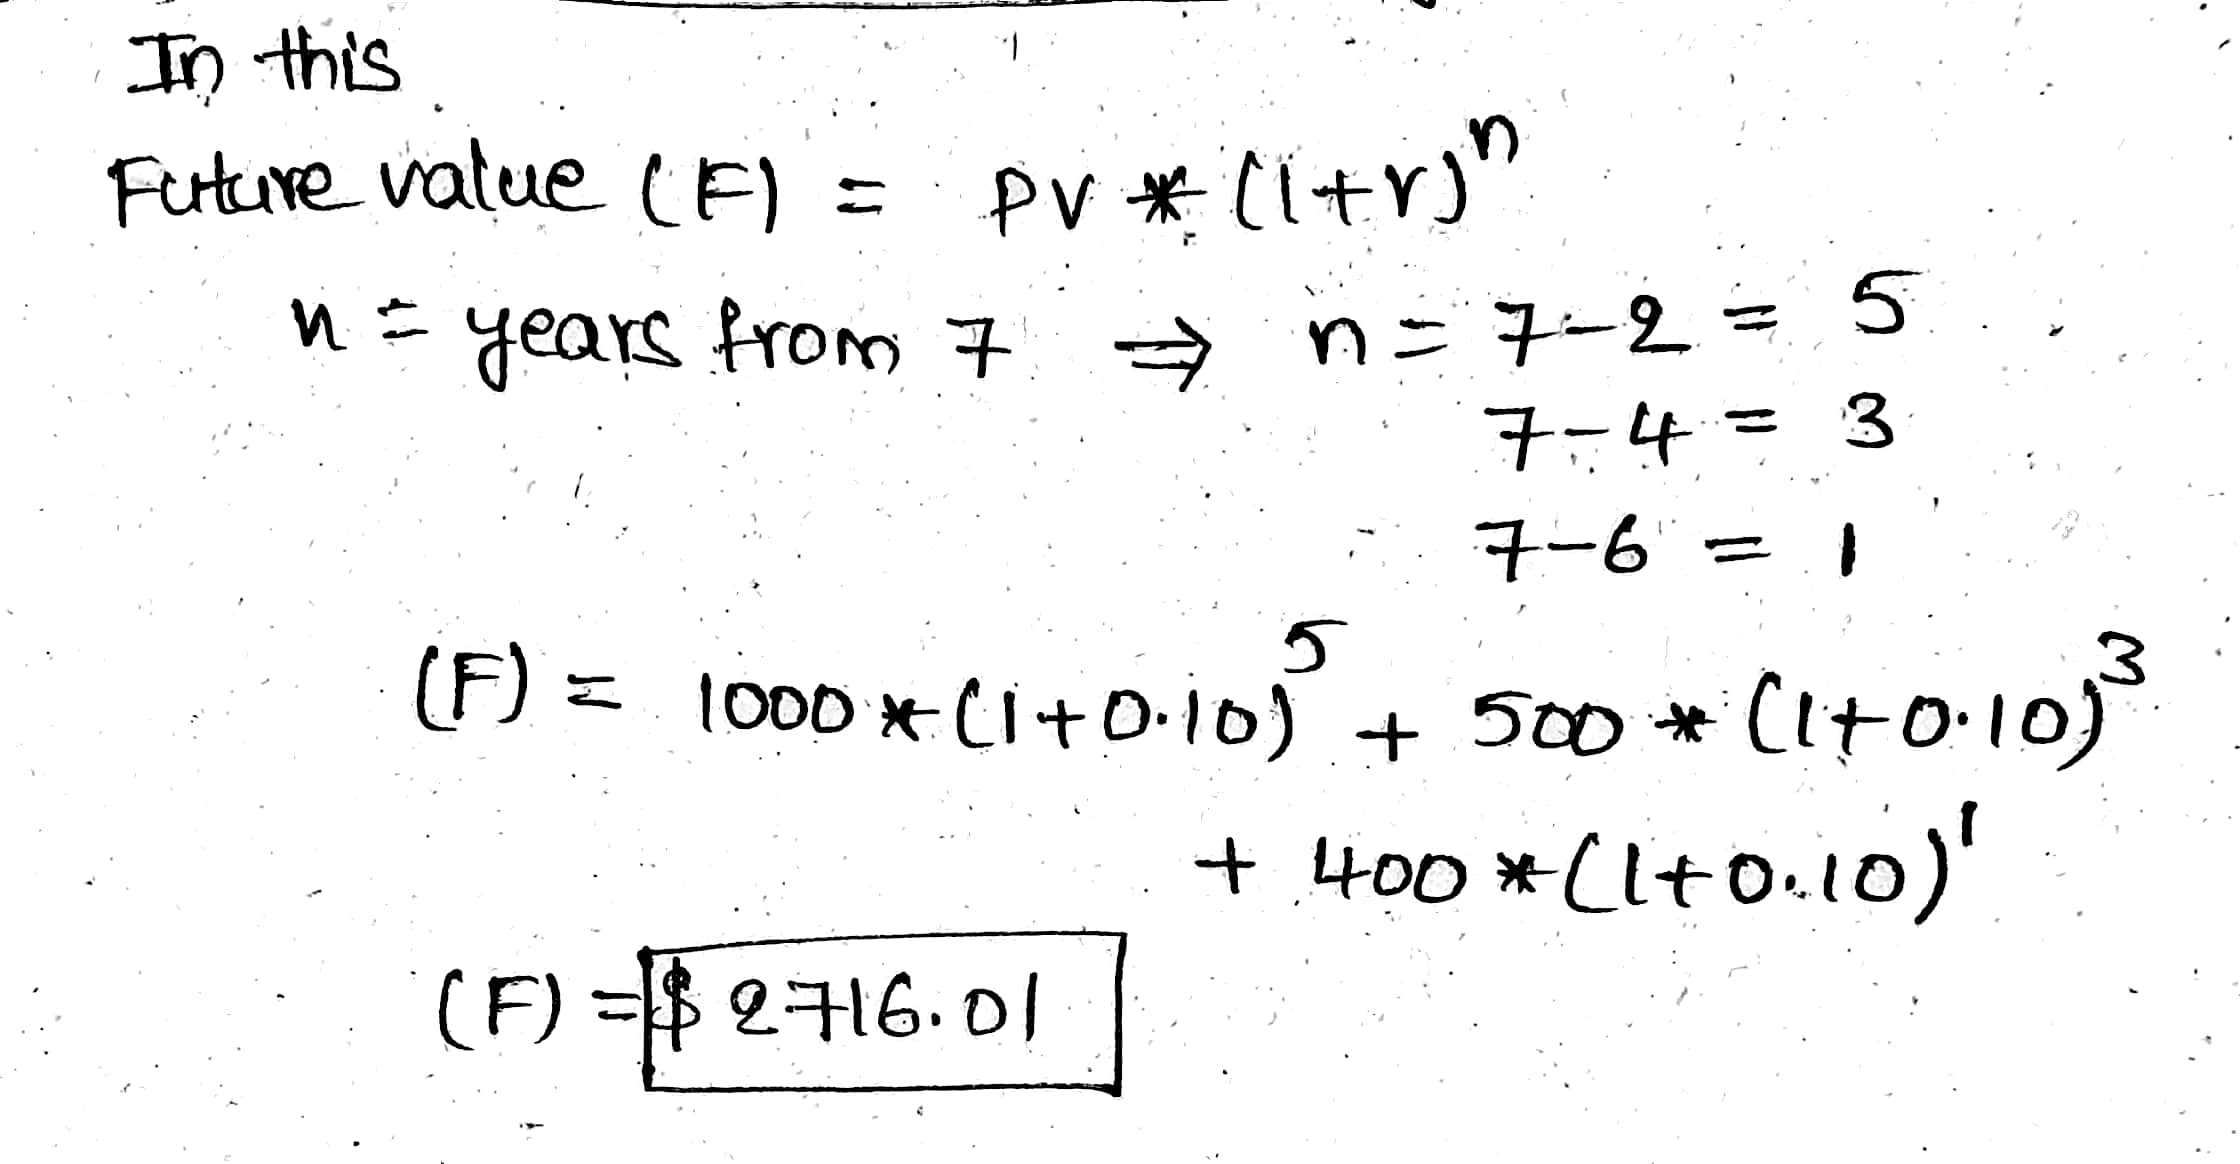 In this
Future value (F) = PV * (1+r)^n
n = years from 7 ⇒ n = 7-2 = 5
7-4 = 3
7-6 = 1
(F) = 1000 * (1+0.10)^5 + 500 * (1+0.10)^3
+ 400 * (1+0.10)^1
(F) = $ 2716.01